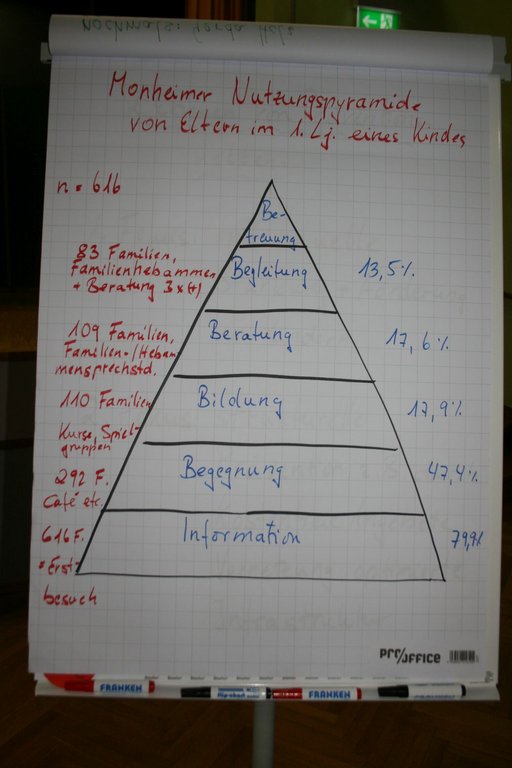 Nochmals: Gerda Holz
Monheimer Nutzungspyramide
von Eltern im 1. Lj. eines Kindes
n = 616
Be-
treuung
83 Familien,
Familienhebammen
+ Beratung 3x(+)
Begleitung
13,5%
109 Familien,
Familien-/Hebam
mensprechstd.
Beratung
17,6%
110 Familien
Kurse, Spiel-
gruppen
Bildung
17,9%
292 F.
Café etc.
Begegnung
47,4%
616 F.
Erst-
besuch
Information
79,9%
PRO/OFFICE
FRANKEN
FRANKEN